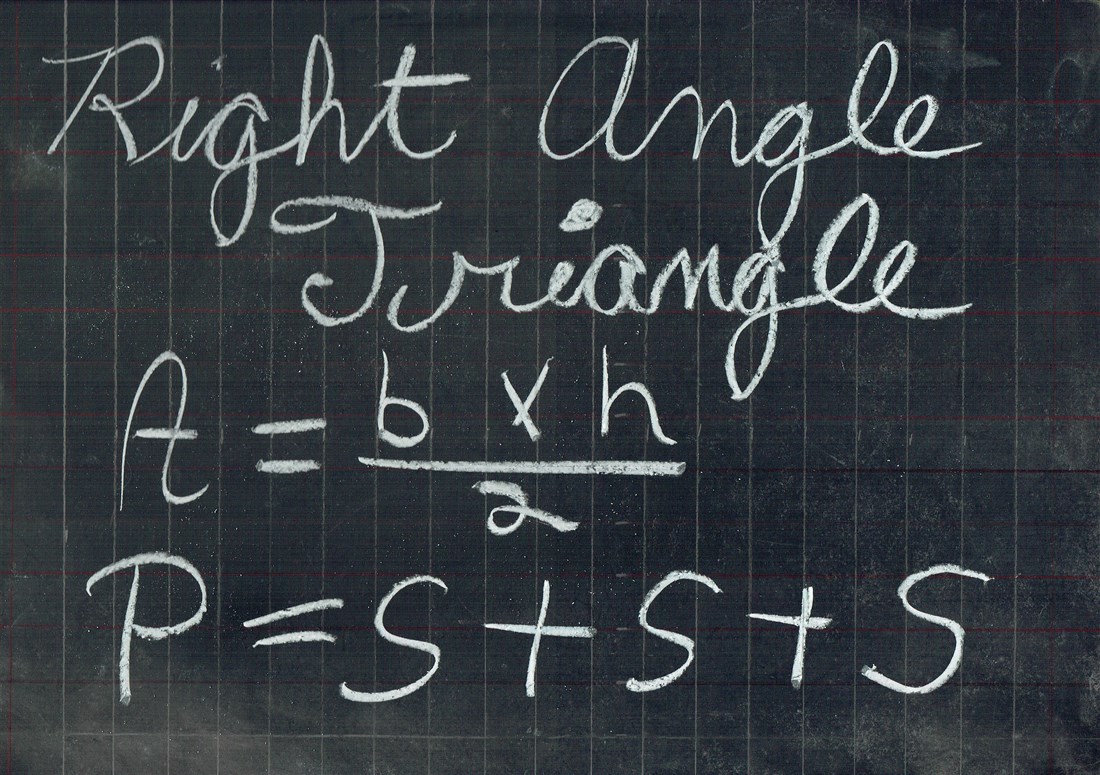 Right Angle
Triangle
A = b x h / 2
P = S + S + S